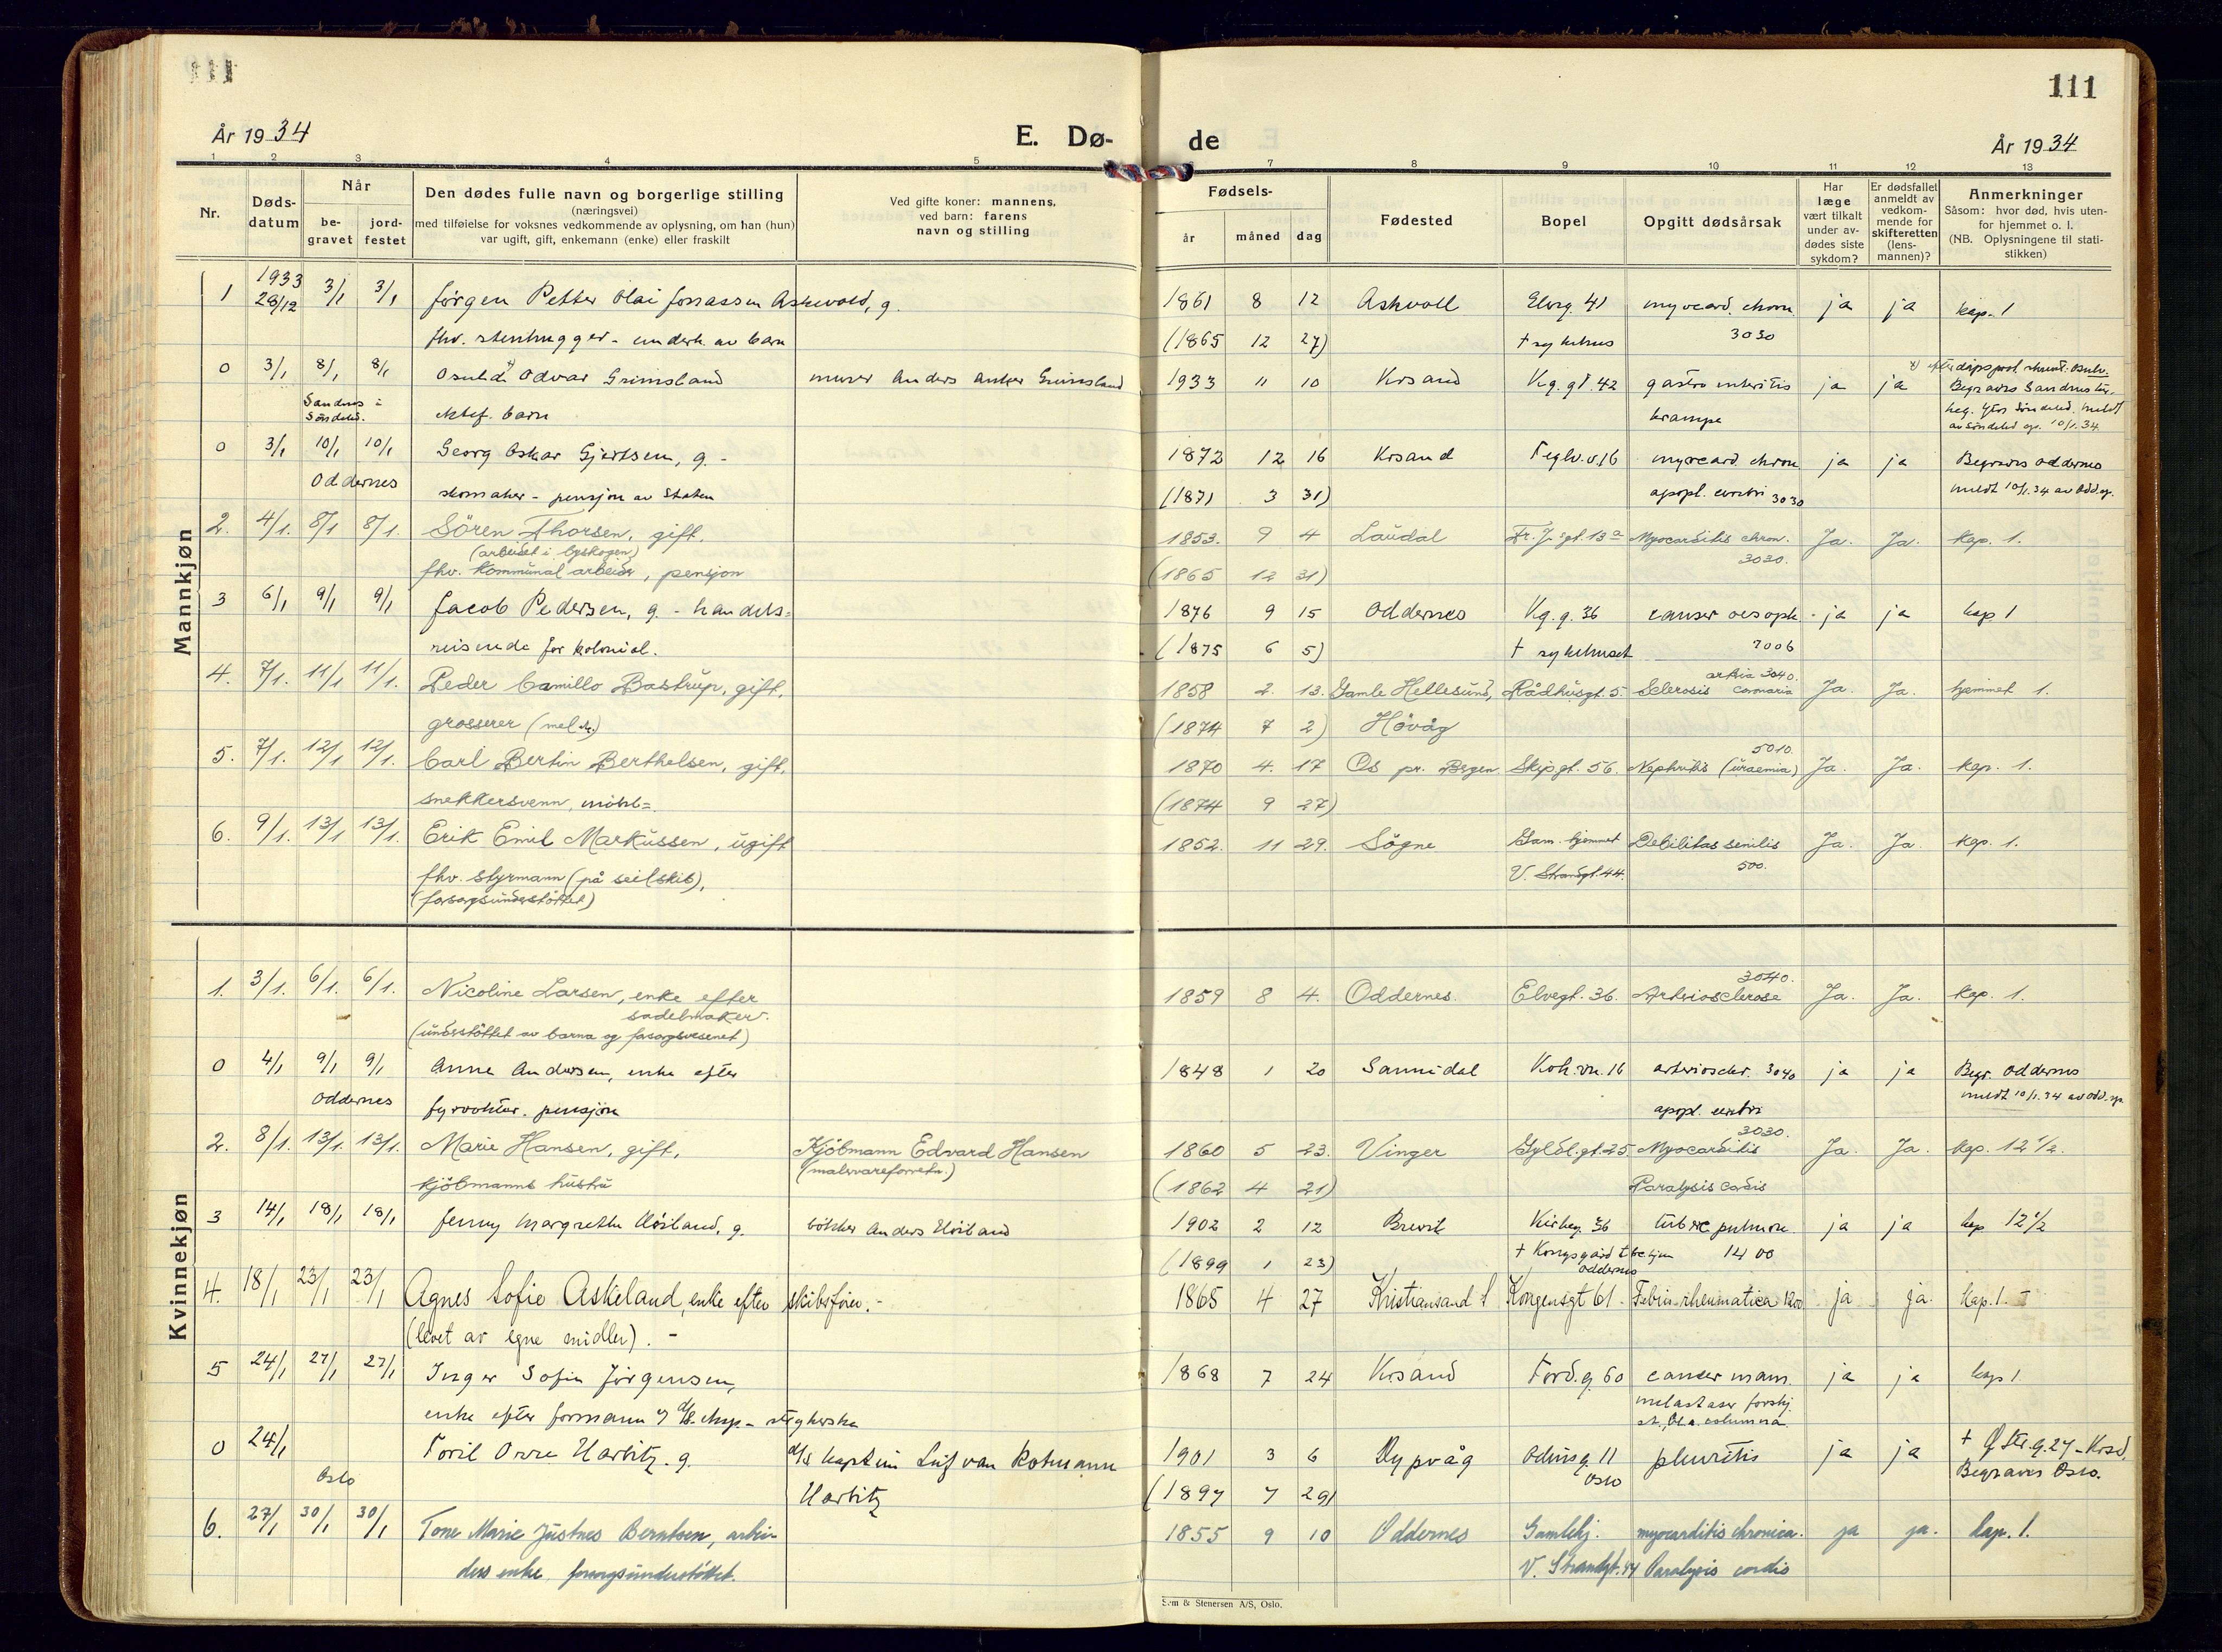 111
År 1934
E. Dø-
1 2 3 4 5
Nr.
Døds-
datum
Når
be-
gravet
jord-
festet
Den dødes fulle navn og borgerlige stilling
(næringsvei)
med tilføielse for voksnes vedkommende av oplysning, om han (hun)
var ugift, gift, enkemann (enke) eller fraskilt
Ved gifte koner: mannens,
ved barn: farens
navn og stilling
Mannkjøn
1 1933 28/12 3/1 3/1 Jörgen Petter Olai Jonassen Askvold, g.
fhv. stenhugger - underh. av barn
0 3/1 8/1 8/1 Odvar Grimsland murer Anders Anker Grimsland
Sandnes i
Söndeled. ektef. barn
0 3/1 10/1 10/1 Georg Oskar Gjertsen, g. -
Oddernes skomaker - pensjon av Staten
2. 4/1. 8/1 8/1. Sören Thorsen, gift.
(arbeidet i byskogen)
fhv. Kommunal arbeider, pensjon
3 6/1 9/1 9/1 Jacob Pedersen, g. - handels=
reisende for kolonial.
4. 7/1. 11/1 11/1. Peder Camillo Bastrup, gift,
grosserer
5. 7/1. 12/1 12/1. Carl Bertin Berthelsen, gift,
snekkersvenn, möbl=
6. 9/1. 13/1 13/1. Erik Emil Markussen, ugift
fhv. styrmann (på seilskib),
(forsorgsunderstöttet)
Kvinnekjøn
1. 3/1. 6/1. 6/1. Nicoline Larsen, enke efter
sadelmaker.
(understöttet av barna og forsorgsvesenet)
0 4/1 9/1 9/1 Anne Andersen, enke efter
Oddernes fyrvokter. pensjon
2. 8/1. 13/1. 13/1. Marie Hansen, gift, Kjöbmann Edvard Hansen
(malervareforretn.)
kjöbmanns hustru
3 14/1 18/1 18/1 Jenny Margrethe Höiland, g. bökker Anders Höiland
4. 18/1 23/1 23/1 Agnes Sofie Askeland, enke efter skibsförer. -
(levet av egne midler). -
5 24/1 27/1 27/1 Inger Sofie Jörgensen,
enke efter formann
0 24/1 Toril Orre Harbitz. g. kaptein Leif van Rotmann
Oslo Harbitz
6. 27/1 30/1 30/1 Tone Marie Justnes Berntsen, arbei-
ders enke. forsorgsunderstöttet.
111
de
År 1934
7 8 9 10 11 12 13
Fødsels-
år måned dag
Fødested
Bopel
Opgitt dødsårsak
Har
læge
vært tilkalt
under av-
dødes siste
sykdom?
Er dødsfallet
anmeldt av
vedkom-
mende for
skifteretten
(lens-
mannen)?
Anmerkninger
Såsom: hvor død, hvis uten-
for hjemmet o. l.
(NB. Oplysningene til stati-
stikken)
1861 8 12 Askvoll Elveg. 41 myocard. chron. ja ja kap. 1
(1865 12 27) † sykehus 3030
1933 11 10 Krsand Kg. gt. 42 gastro enteritis ja ja
krampe
Begraves Sandnes
av Söndeled 10/1.34.
1872 12 16 Krsand Teglv. v. 16 myocard. chron ja ja Begraves Oddernes
(1871 3 31) apopl. cerebri 3030 meldt 10/1.34 av Odd.sp.
1853. 9 4 Laudal Myocarditis chron. Ja. Ja. Kap. 1.
(1865 12 31) 3030.
1876 9 15 Oddernes Kg. g. 36 cancer oesoph. ja ja kap 1
(1875 6 5) † sykehuset
1858 2. 13. Gamle Hellesund, Rådhusgt. 5 Sclerosis coronaria 3040. Ja. Ja. hjemmet 1.
(1874 7 2) Hövåg
5010.
1870 4. 17 Os pr. Bergen Skipgt. 56. Nephritis (uraemia) Ja. Ja. Kap. 1.
(1874 9 27)
1852. 11 29. Sögne Gam. hjemmet Debilitas senilis Ja. Ja. Kap. 1.
V. Strandgt. 44. 500.
3040.
1859 8 4. Oddernes. Elvegt. 36. Arteriosclerose Ja. Ja. Kap. 1.
1848 1 20 Sannidal Koh. vn. 16 arterioscler. 3040 ja ja Begr. Oddernes
apopl. cerebri meldt 10/1.34 av Odd.sp.
3030.
1860 5 23. Vinger Gyldl.gt. 25 Myocarditis Ja. Ja. Kap. 12 1/2.
(1862 4 21) Paralysis cordis
1902 2 12 Brevik Kirkeg. 36 tuberc pulmon. ja ja kap 12 1/2
(1899 1 23) † Kongsgård tbc.hjem 1400
Oddernes
1865 4 27 Kristiansand S Kongensgt 61 - Febris rheumatica 1200 ja ja. kap. 1. -
1868 7 24 Krsand Tord. g. 60 cancer mam. ja ja kap 1.
metastaser forskj.
st., bl. a. columna.
1901 3 6 Dypvåg Odinsg. 11 pleuritis ja ja
Oslo Begraves Oslo.
(1897 7 29)
1855 9 10 Oddernes Gamlehj. myocarditis chronica. ja ja. kap. 1.
V. Strandgt. 44 Paralysis cordis
Sem & Stenersen A/S, Oslo.